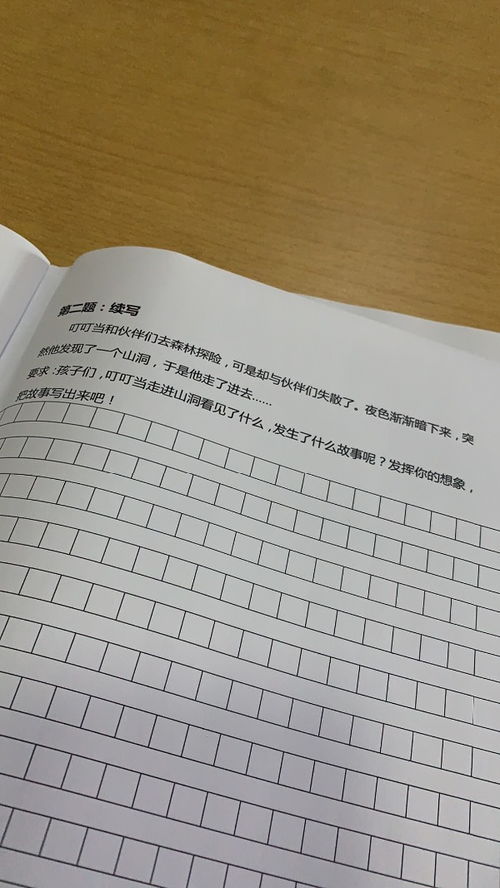 第二题：续写
叮叮当和伙伴们去森林探险，可是却与伙伴们失散了。夜色渐渐暗下来，突
然他发现了一个山洞，于是他走了进去……
要求：孩子们，叮叮当走进山洞看见了什么，发生了什么故事呢？发挥你的想象，
把故事写出来吧！